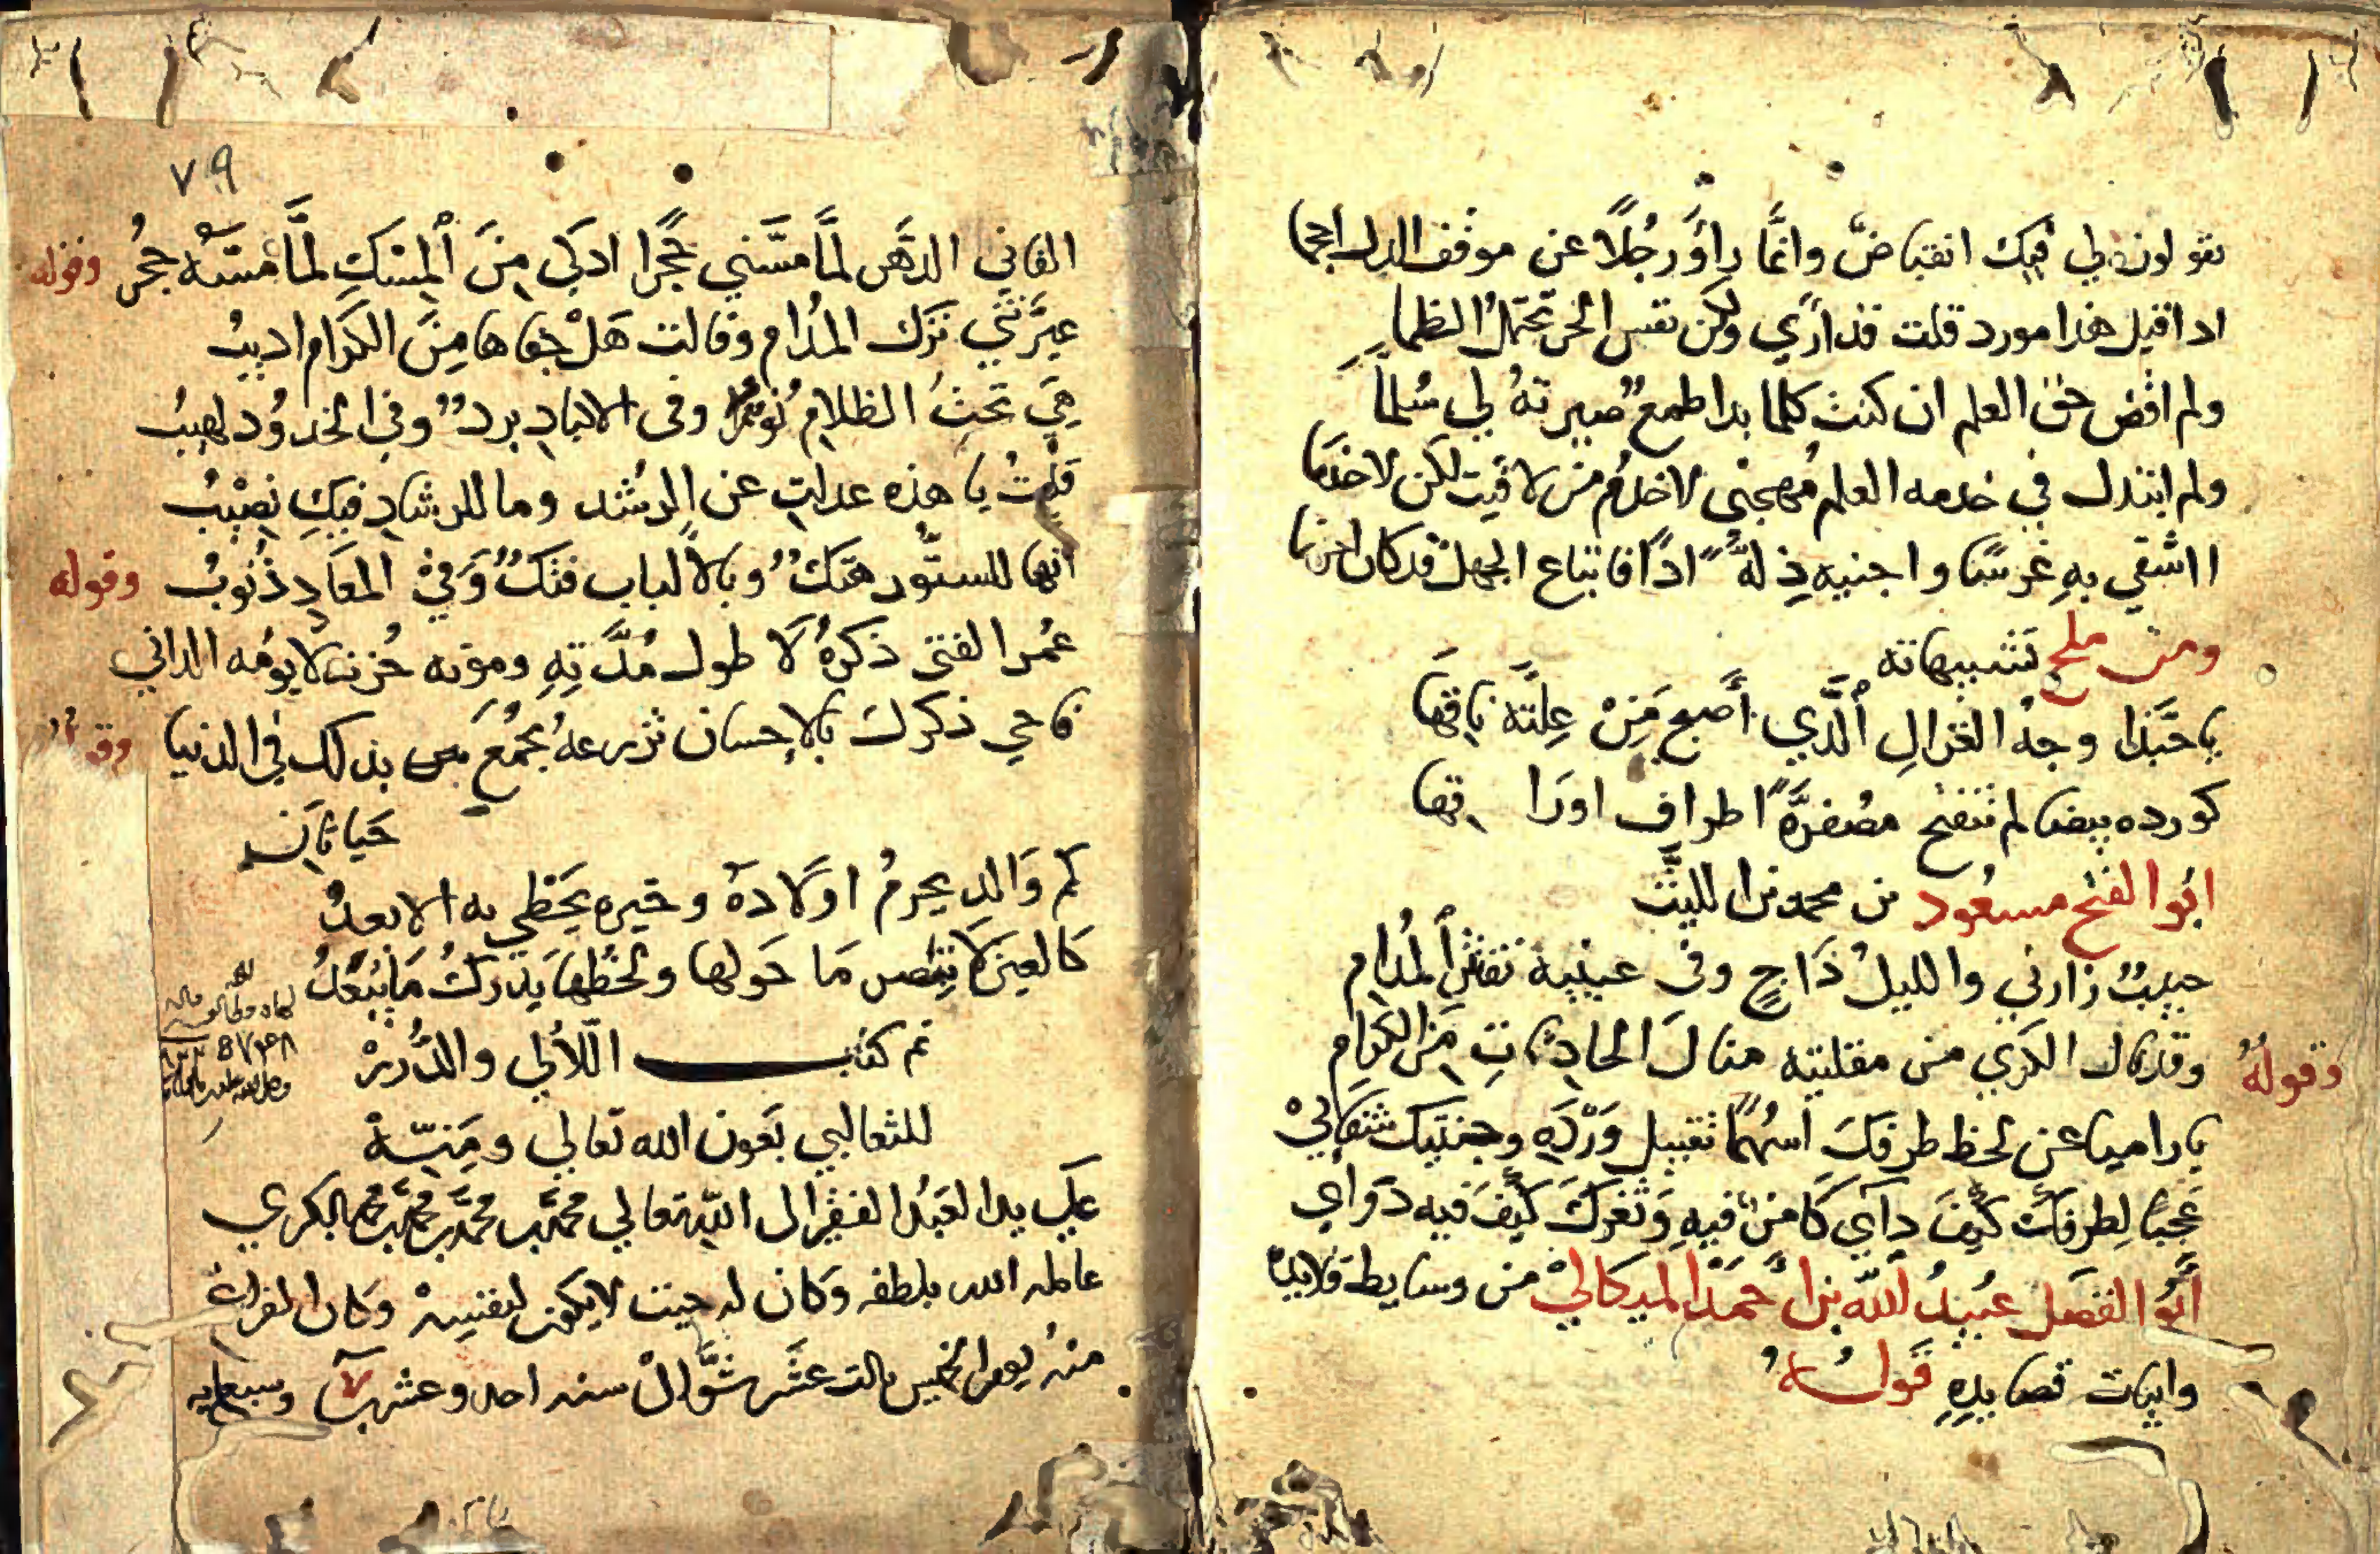 يقولون لي فيك انقباض وانما راو رجلا عن موقف الذل احجما
اذا قيل هذا مورد قلت قد اري ولكن نفس الحر تحتمل الظما
ولم اقض حق العلم ان كنت كلما بدا طمع صيرته لي سلما
ولم ابتذل في خدمه العلم مهجتي لاخدم من لاقيت لكن لاخدما
ااشقي به غرسا واجنيه ذلة اذا فابتياع الجهل قد كان احزما
ومن ملح تشبيهاته
يا حبذا وجه الغزال الذي أصبح من علته ناقها
كورده بيضا لم تنفتح مصفرة اطراف اوراقها
ابو الفتح مسعود بن محمد بن الليث
حبيب زارني والليل داج وفي عينيه تفتير المدام
وقد نال الكري من مقلتيه منال الحادثات من الكرام
وقوله
يا راميا عن لحظ طرفك اسهما تقبيل وردة وجنتيك شفائي
عجبا لطرفك كيف دآي كامن فيه وثغرك كيف فيه دوائي
أبو الفضل عبيد الله بن احمد الميكالي من وسايط قلايده
وابيات قصايده قوله
٧٩
الفاني الدهر لما مسني حجرا اذكى من المسك لما مسه حجر وقوله
عيرتني ترك المدام وقالت هل جفاها من الكرام اديب
هي تحت الظلام نور وفى الاكباد برد وفي الخدود لهيب
قلت يا هذه عدلت عن الرشد وما للرشاد فيك نصيب
انها للستور هتك وبالالباب فتك وفي المعاد ذنوب وقوله
عمر الفتى ذكره لا طول مدته وموته حزنه لا يومه الداني
فاحي ذكرك بالاحسان تزرعه تجمع بذلك في الدنيا
حياتان
كم والد يحرم اولاده وخيره يحظي به الابعد
كالعين لا تبصر ما حولها ولحظها يدرك ما يبعد
تم كتب اللآلي والدرر
للثعالبي بعون الله تعالي ومنه
علي يد العبد الفقير الى الله تعالي محمد بن محمد بن محمد بن محمد البكري
عامله الله بلطفه وكان له حيث لا يكون لنفسه وكان الفراغ
منه يوم الخميس ثالث عشر شوال سنه احد وعشرين وسبعمايه